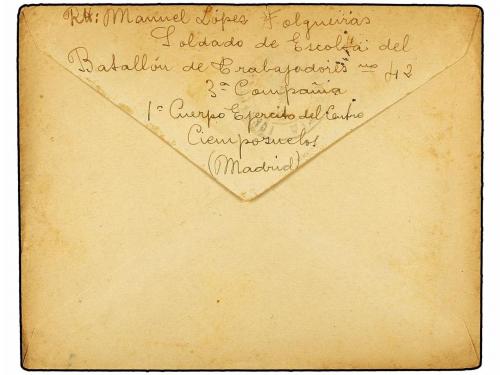 Rtt: Manuel López Folgueiras
Soldado de Escolta del
Batallón de Trabajadores nº 42
3ª Compañia
1º Cuerpo Ejercito del Centro
Ciempozuelos
(Madrid)